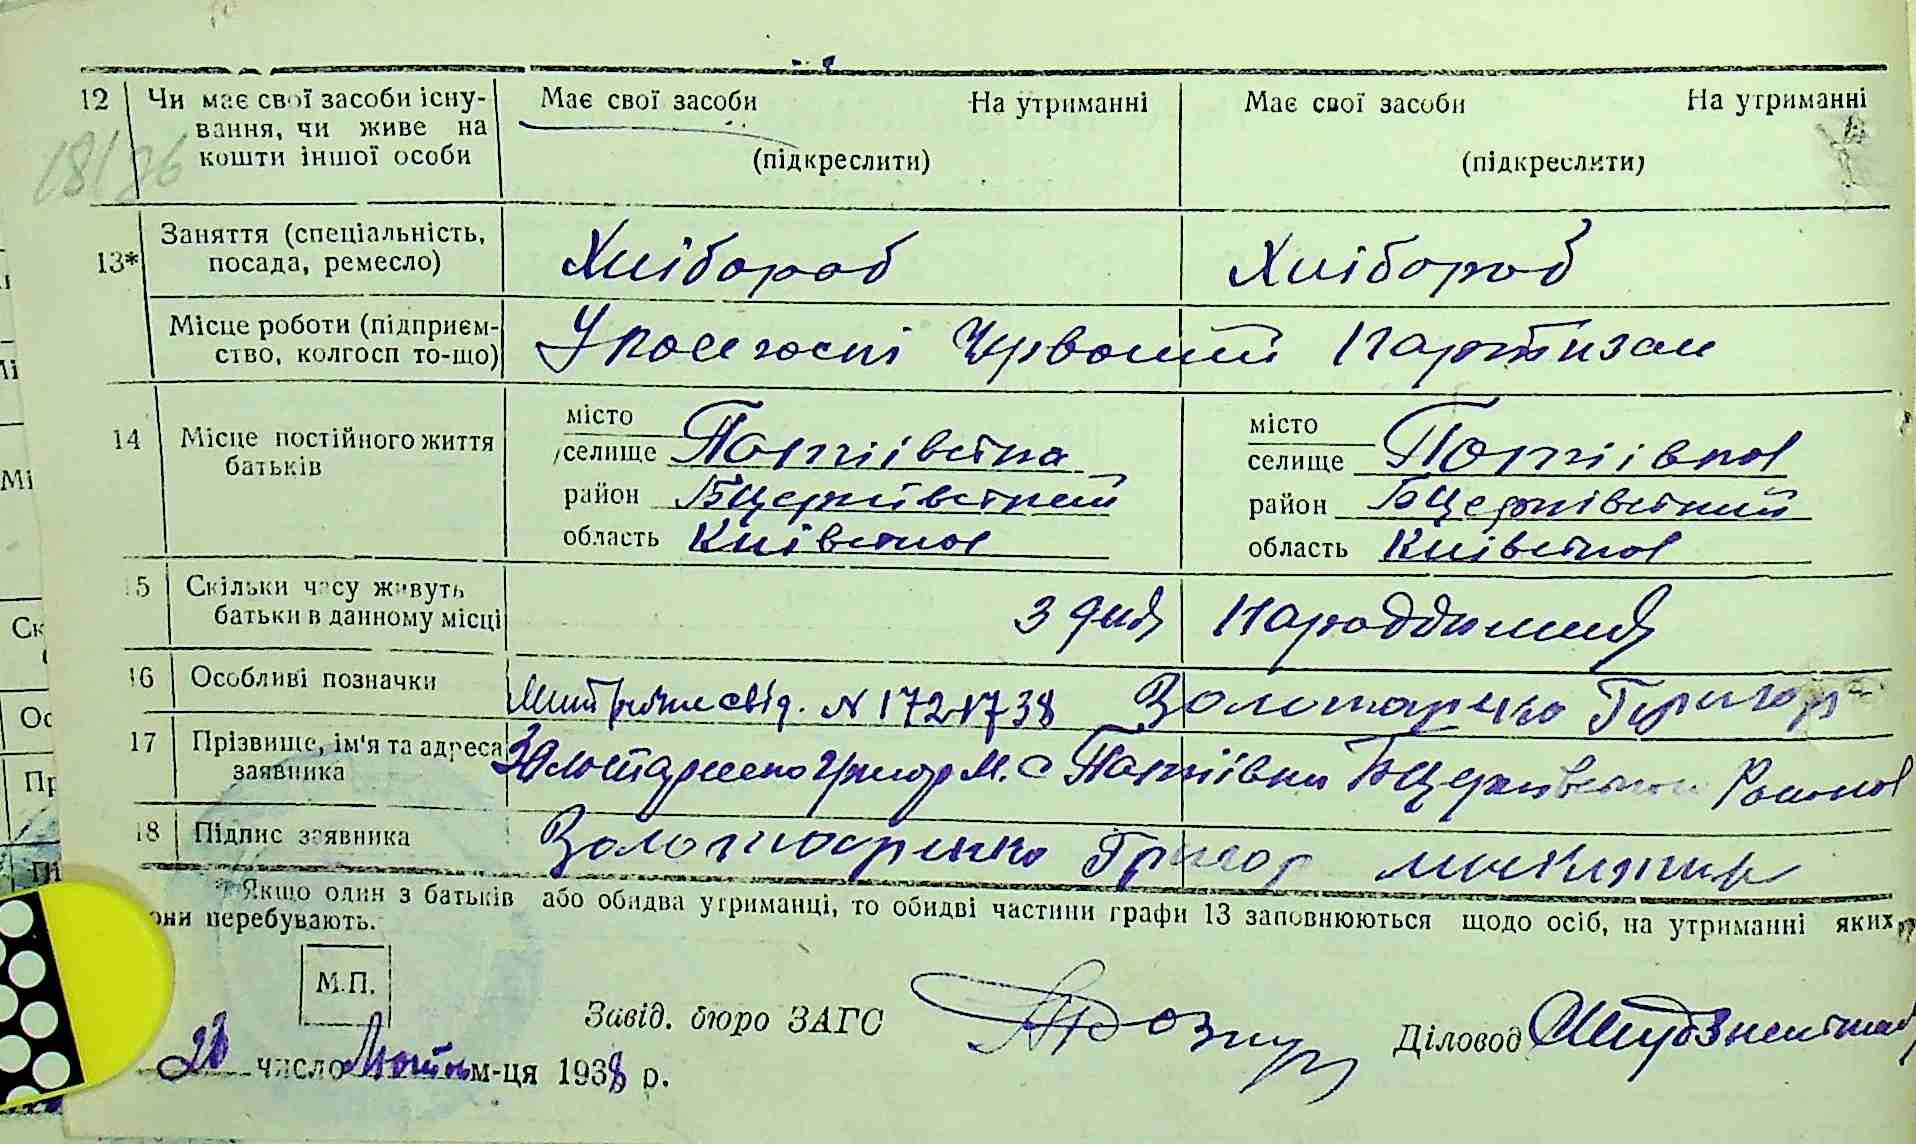 12 Чи має свої засоби існу- Має свої засоби На утриманні Має свої засоби На утриманні
вання, чи живе на
кошти іншої особи (підкреслити) (підкреслити)
18/26
13* Заняття (спеціальність, посада, ремесло) Хлібороб Хлібороб
Місце роботи (підприєм-
ство, колгосп то-що) У колгоспі Червоний Партизан
14 Місце постійного життя батьків
місто місто
селище селище
район Бцерківский район Бцерківский
область Київская область Київская
15 Скільки часу живуть
батьки в данному місці З дня Народдення
16 Особливі позначки свід. N 1721738 Золотаренко Григор
17 Прізвище, ім'я та адреса
заявника Золотаренко Григор М. с
18 Підпис заявника Золотаренко Григор
* Якщо один з батьків або обидва утриманці, то обидві частини графи 13 заповнюються щодо осіб, на утриманні яких
они перебувають.
М.П.
Завід. бюро ЗАГС Діловод
число м-ця 1938 р.